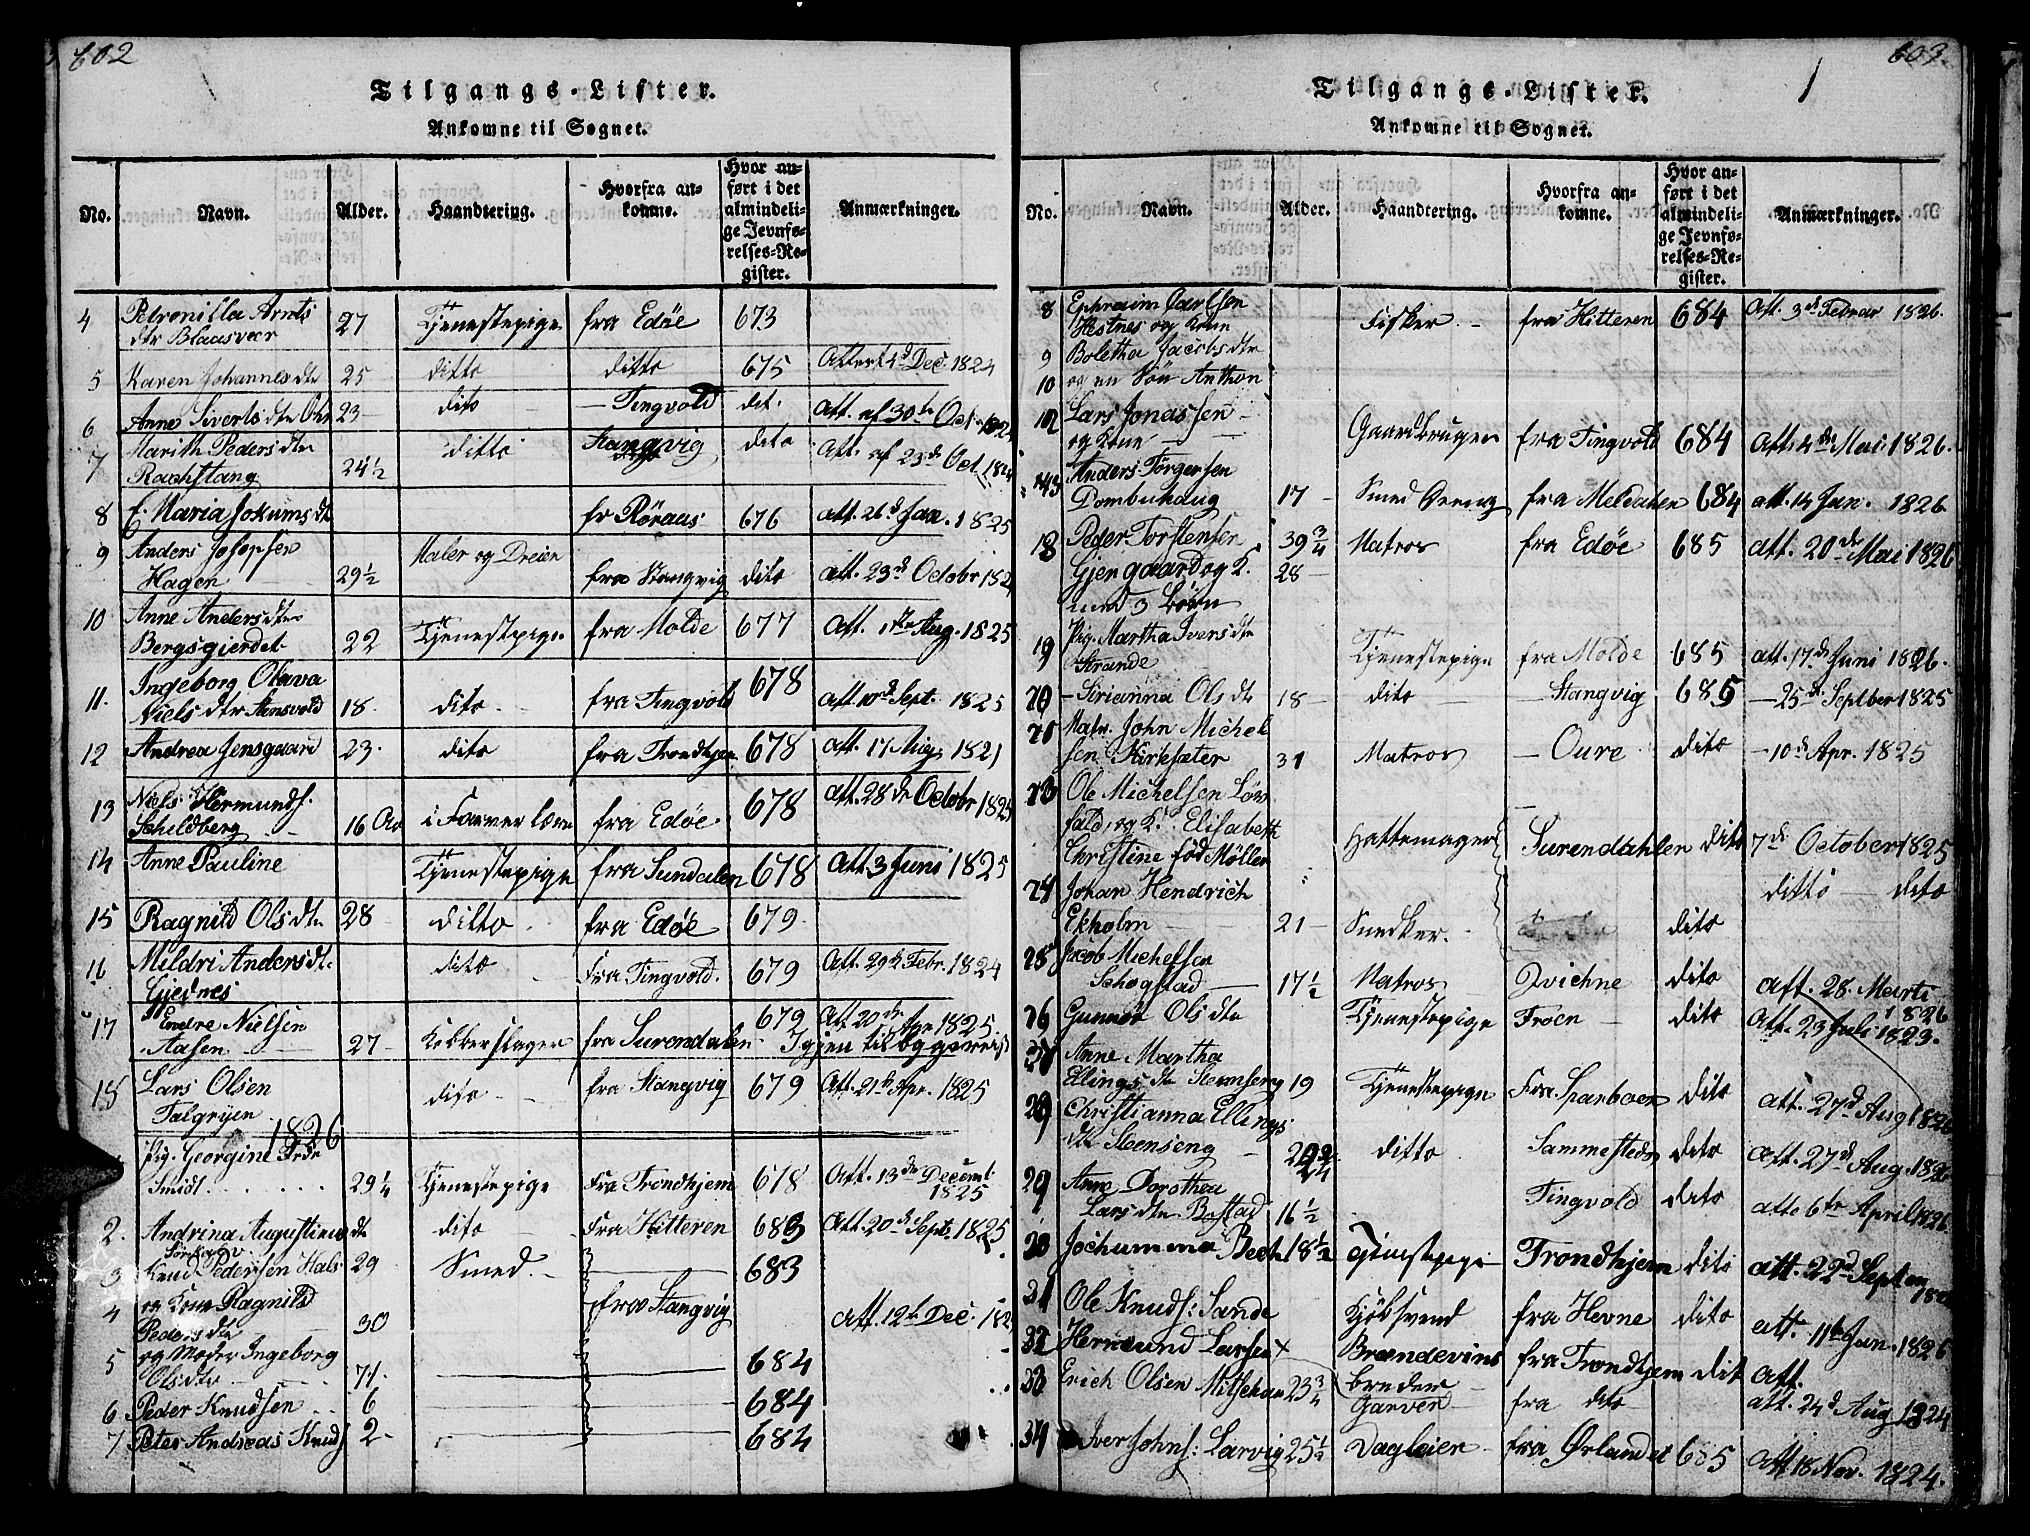 602
Tilgangs-Lister.
Ankomne til Sognet.
No. Navn. Alder. Haandtering. Hvorfra ankomne. Hvor anført i det almindelige Jevnførelses-Register. Anmærkninger.
4 Petronilla Arnts
dtr Blaasvær 27 Tjenestepige fra Edøe 673
5 Karen Johannesdtr 25 ditto ditto 675 Attest 4d Dec. 1824
6 Anne Sivertsdtr 23 dito Tingvold dit. Att. af 30te Oct.
7 Marith Pedersdtr
24½ ditto Stangvig dito Att. af 23d Oct. 1824
8 E. Maria Jokumsdt fr Røraas 676 Att. 26d Jan. 1825
9 Anders Josepsen
Hagen 29½ Maler og fra Stangvig dito Att. 23d Octobr 182
10 Anne Andersdtr
Bergsgjerdet 22 Tjenestepige fra Molde 677 Att. 1ste Aug. 1825
11. Ingeborg Olava
Nielsdtr 18. dito fra Tingvold 678 Att. Sept. 1825
12 Andrea Jensgaard 23. dito fra Trondhjem 678 Att. 17 Aug. 1821
13 Niels Hermunds.
Schildberg 16 i Farver lære fra Edøe 678 Att. 28de Octobr 1825
14 Anne Pauline Tjenestepige fra Sundalen 678 Att 3 Juni 1825
15 Ragnild Olsdtr 28 ditto fra Edøe 679
16 Mildri Andersdt.
Gjednes dito Fra Tingvold. 679 Att. 29d Febr. 1824
17 Endre Nielsen 679 Att 20de 1825
Aasen 27 Kobberslager fra Surendalen Igjen tilbagereist
18 Lars Olsen
Talgøyen dito fra Stangvig 679 Att. 21d Apr. 1825
1826
Pig. Georgine
Smidt 29¼ Tjenestepige Fra Trondhjem 678 Att. 13de Decembr
1825
2. Andrina Augustinusdt dito Fra Hitteren 683 Att. 20d Sept. 1825
3 Knud Pedersen Hals 29 Smed. 683
4 og Kone Ragnild
Pedersdtr 30 fra Stangvig Att. 12te Dec. 182
5 og Moder Ingeborg
Olsdtr 71. 684
6 Peder Knudsen 6 684
7 Peter Andreas Knuds 2. 684
603.
Tilgangs-Lister.
Ankomne til Sognet.
No. Navn. Alder. Haandtering. Hvorfra ankomne. Hvor anført i det almindelige Jevnførelses-Register. Anmærkninger.
8 Ephraim Carlsen
Hestnes og Kone Fisker fra Hitteren 684 Att. 3d Februar 1826.
9 Boletha Jacobsdtr
10 og en Søn Anthon
12 Lars Jonassen
og Kone Gaardbruger fra Tingvold 684 Att. 4de Mai 1826.
Anders Jørgensen
Dombuhaug 17 Smed Dreng fra Meldalen 684 att. 14 Jan. 1826.
18 Peder Torstensen 39¾ Matros fra Edøe 685 Att. 20de Mai 1826
Gjengaard og K. 28
med 3 Børn
19 Pig. Martha Iversdtr
Strande Tjenestepige fra Molde 685 att. 17d Juni 1826.
20 Sirianna Olsdtr 18 dito Stangvig 685 25de Septber 1825
21 Matr. John Michel
sen Kirksæter 31 Matros Oure dito 10d Apr. 1825
23 Ole Michelsen
fald, og K. Elisabeth Hattemager Surendahlen dito 7d October 1825
Christine fød Møller
24 Johan Hendrich ditto dito
Ekholm 21 Snedker. dito
25 Jacob Michelsen
Schogstad 17½ Matros dito Att. 28. Marti
1826
26 Gunner Olsdtr Tjenestepige Froen dito Att. 23 Juli 1823.
27 Anne Martha
Ellingsdtr Stenseng 19 Tjenestepige Fra Sparboen dito att. 27d Aug 1826
28 Christianna Ellings
dtr Steenseng ditto Sammesteds dito Att. 27d Aug. 1826
29 Anne Dorothea
Larsdtr 16½ Tingvold dito att. 6te April 1826
30 Jochumma Beck 18½ Trondhjem dito att. 22d Septem
31 Ole Knuds: Sande Kjøbsvend fra Hevne dito att. 11te Jan. 1826
32 Hermund Larsen Brændevins fra Trondhjem dit att.
33 Erich Olsen 23¾ Garver fra dito att. 24d Aug 1824
34 Iver Johns: Larvig 25½ Dagleier fra Ørlandet 685 Att 18 Nov. 1824.